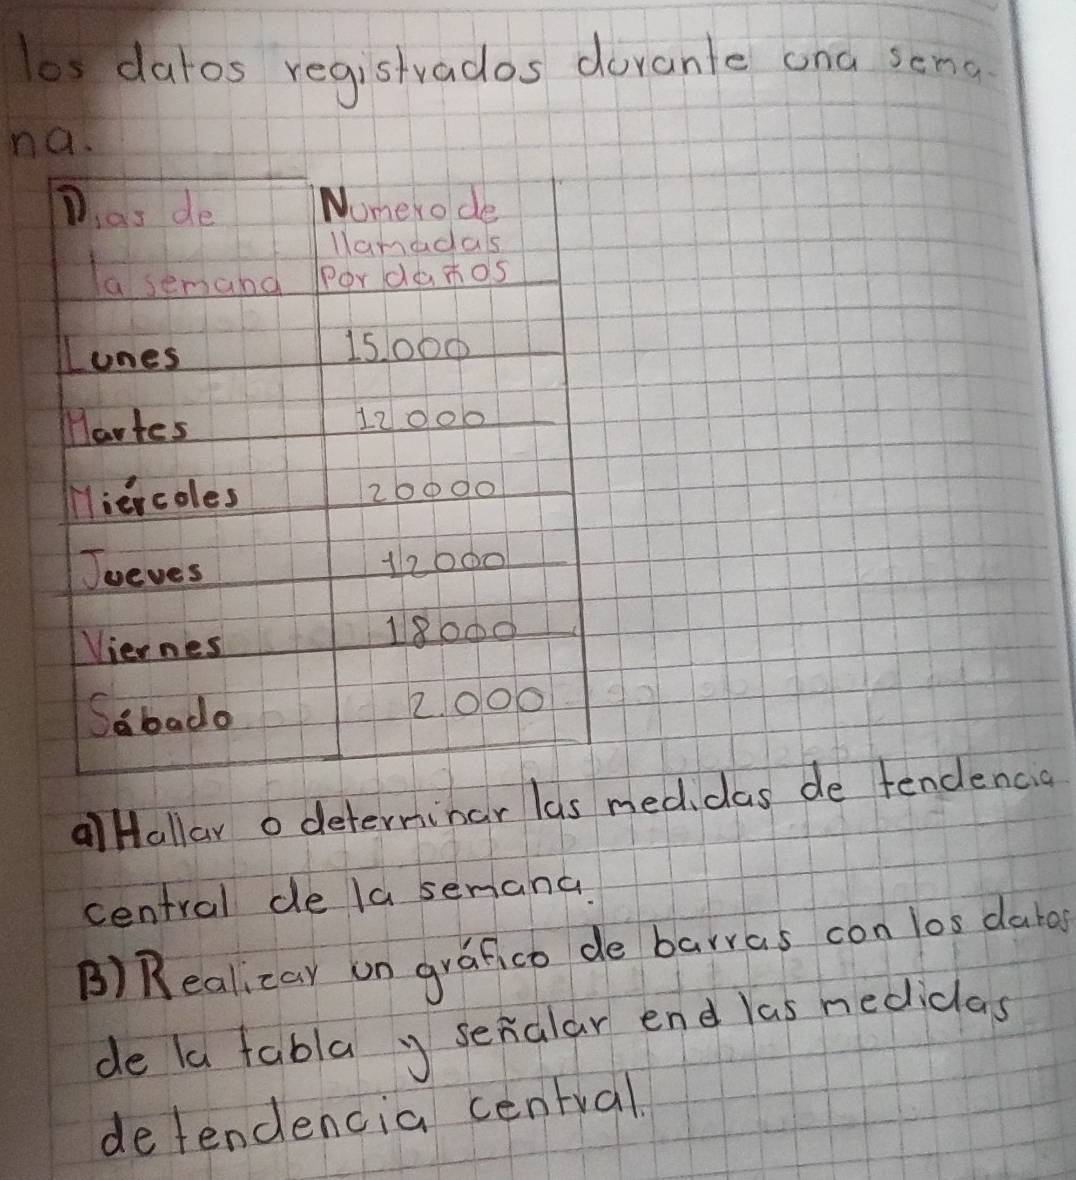 los datos registrados durante una sema-
na.
Dias de
la semana
Numero de
llamadas
Por daños
Lunes 15.000
Martes 12000
Miércoles 20000
Jueves 12000
Viernes 18000
Sábado 2.000
a) Hallar o determinar las medidas de tendencia
central de la semana.
B) Realizar un gráfico de barras con los datos
de la tabla y señalar end las medidas
de tendencia central.